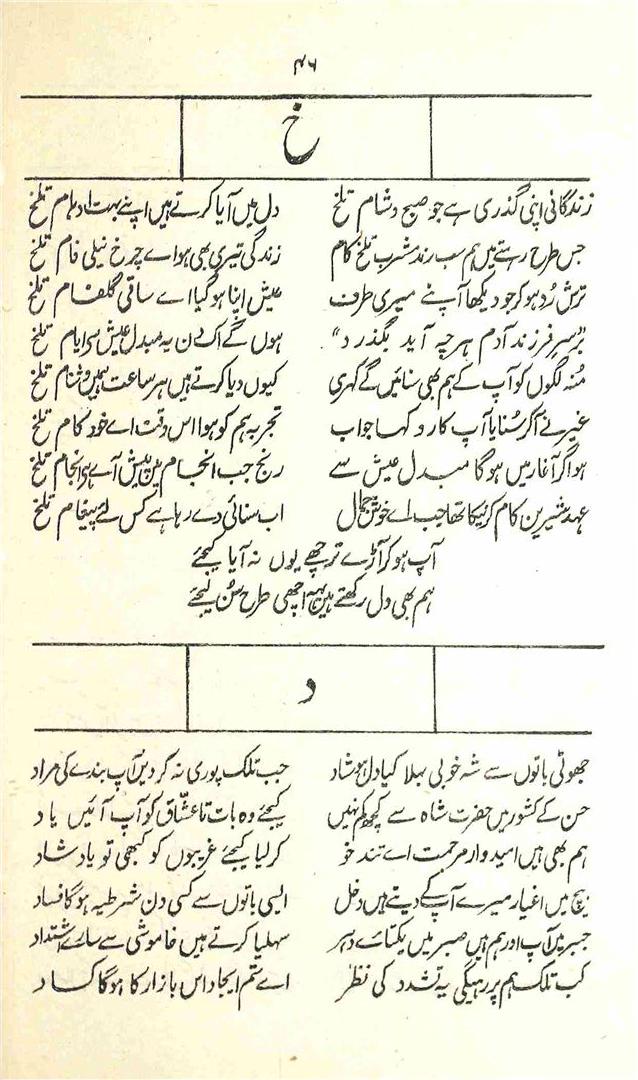 ۴۶
خ
زندگانی اپنی گذری ہے جو صبح و شام تلخ دل میں آیا کرتے ہیں اپنے بہت اوہام تلخ
جس طرح رہتے ہیں ہم سب رند مشرب تلخ کام زندگی تیری بھی ہو اے چرخ نیلی فام تلخ
ترش رُو ہو کر جو دیکھا آپنے میری طرف عیش اپنا ہو گیا اے ساقی گلفام تلخ
"برسرِ فرزند آدم ہرچہ آید بگذرد" ہوں گے اک دن یہ مبدل عیش سے ایام تلخ
مُنہ لگوں کو آپ کے ہم بھی سنائیں گے کہری کیوں دیا کرتے ہیں ہر ساعت ہمیں دشنام تلخ
غیر نے آکر سُنایا آپ کا رو کہا جواب تجربہ ہم کو ہوا اس وقت اے خود کام تلخ
ہو اگر آغاز میں ہوگا مبدل عیش سے رنج جب انجام میں پیش آئے ہو انجام تلخ
عہد شیرین کام کرنیکا تھا جب اے خوش جمال اب سنائی دے رہا ہے کس لئے پیغام تلخ
آپ ہو کر آڑے ترچھے یوں نہ آیا کیجئے
ہم بھی دل رکھتے ہیں یہہ اچھی طرح سُن لیجئے
د
جھوٹی باتوں سے شہ خوبی بہلا کیا دل ہو شاد جب تلک پوری نہ کر دیں آپ بندے کی مراد
حسن کے کشور میں حضرت شاہ سے کچھ کم نہیں کیجئے وہ بات تا عشّاق کو آپ آئیں یاد
ہم بھی ہیں امیدوار مرحمت اے تند خو کر لیا کیجئے غریبوں کو کبھی تو یاد شاد
بیچ میں اغیار میرے آپ کے دیتے ہیں دخل ایسی باتوں سے کسی دن شرطیہ ہوگا فساد
جبر میں آپ اور ہم ہیں صبر میں یکتائے دہر سہلیا کرتے ہیں خاموشی سے سارے اشتداد
کب تلک ہم پر رہیگی یہ تشدد کی نظر اے ستم ایجاد اس بازار کا ہوگا کساد